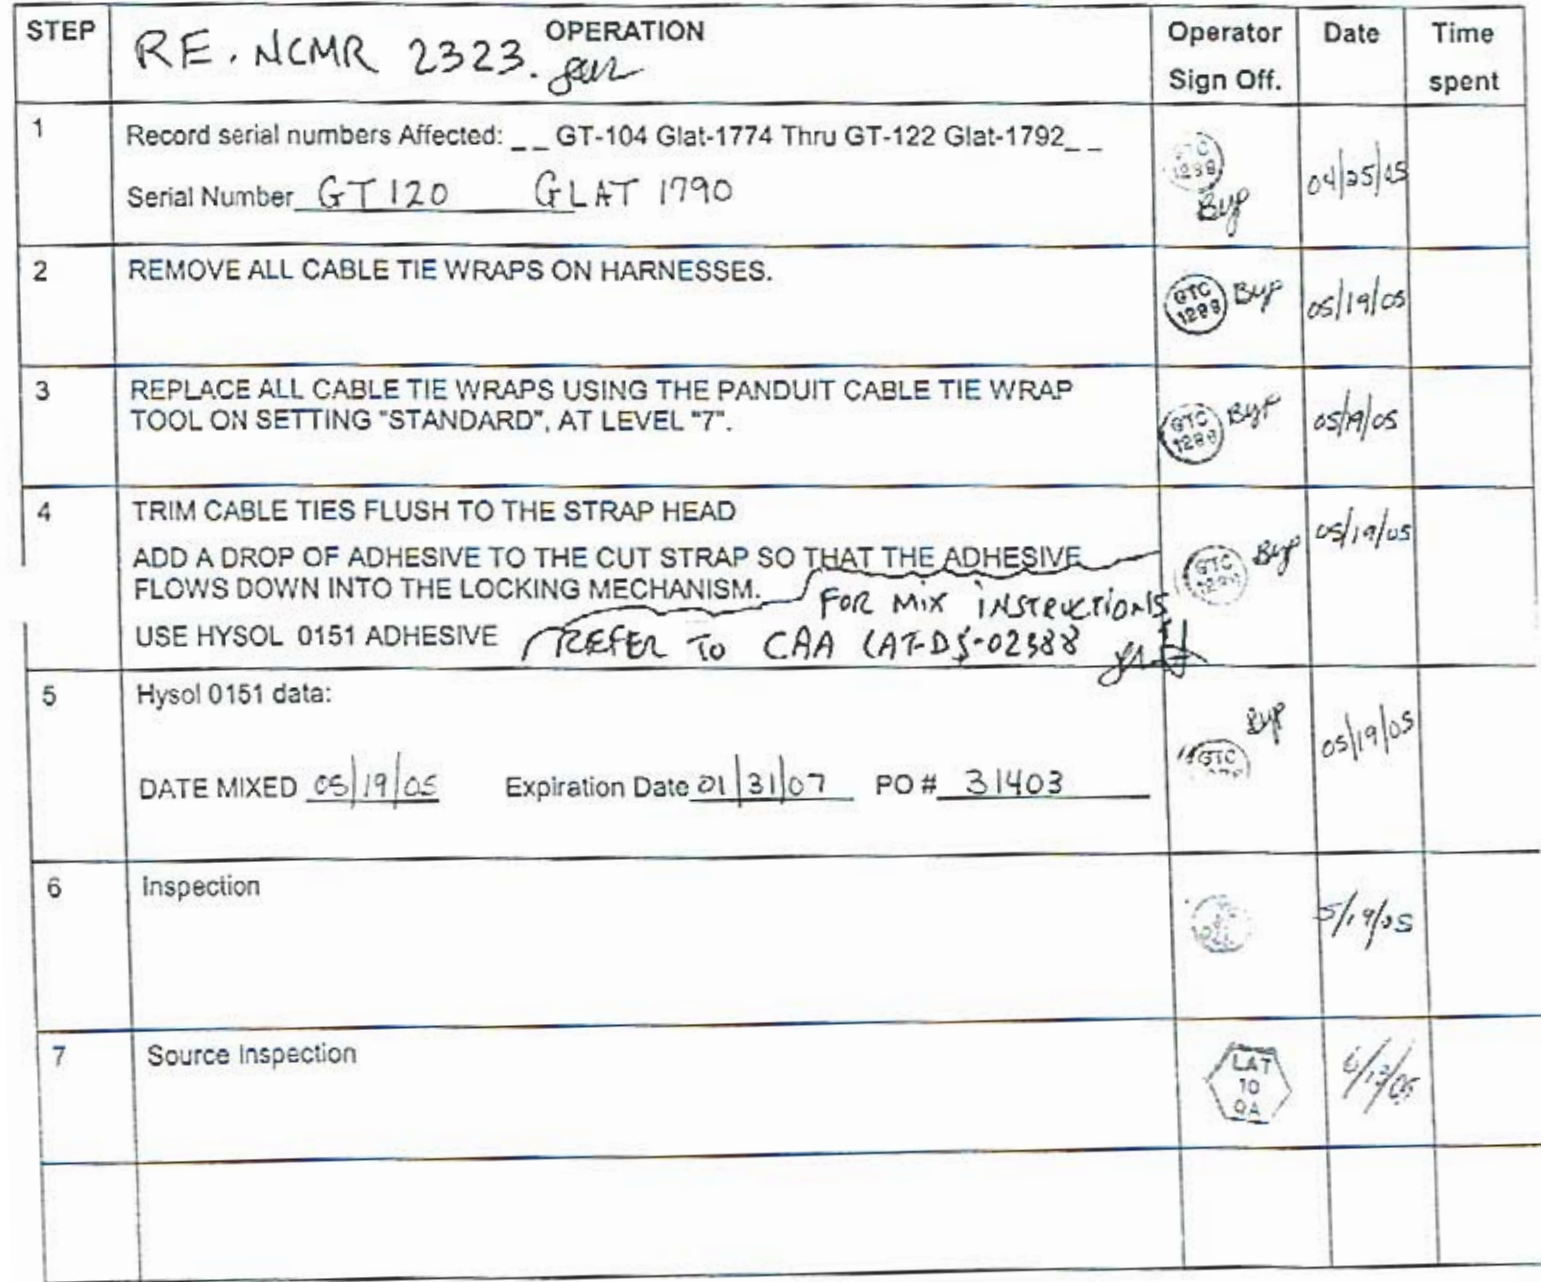 STEP OPERATION Operator Sign Off. Date Time spent
RE. NCMR 2323.
1 Record serial numbers Affected: _ _ GT-104 Glat-1774 Thru GT-122 Glat-1792_ _
Serial Number GT 120 GLAT 1790
GTC 1298 Byp 04/25/05
2 REMOVE ALL CABLE TIE WRAPS ON HARNESSES.
GTC 1298 Byp 05/19/05
3 REPLACE ALL CABLE TIE WRAPS USING THE PANDUIT CABLE TIE WRAP
TOOL ON SETTING "STANDARD", AT LEVEL "7".
GTC 1298 Byp 05/19/05
4 TRIM CABLE TIES FLUSH TO THE STRAP HEAD
ADD A DROP OF ADHESIVE TO THE CUT STRAP SO THAT THE ADHESIVE
FLOWS DOWN INTO THE LOCKING MECHANISM. FOR MIX INSTRUCTIONS
USE HYSOL 0151 ADHESIVE REFER TO CAA LAT-DS-02388
GTC Byp 05/19/05
5 Hysol 0151 data:
DATE MIXED 05/19/05 Expiration Date 01/31/07 PO # 31403
GTC Byp 05/19/05
6 Inspection
5/19/05
7 Source Inspection
LAT
10
QA